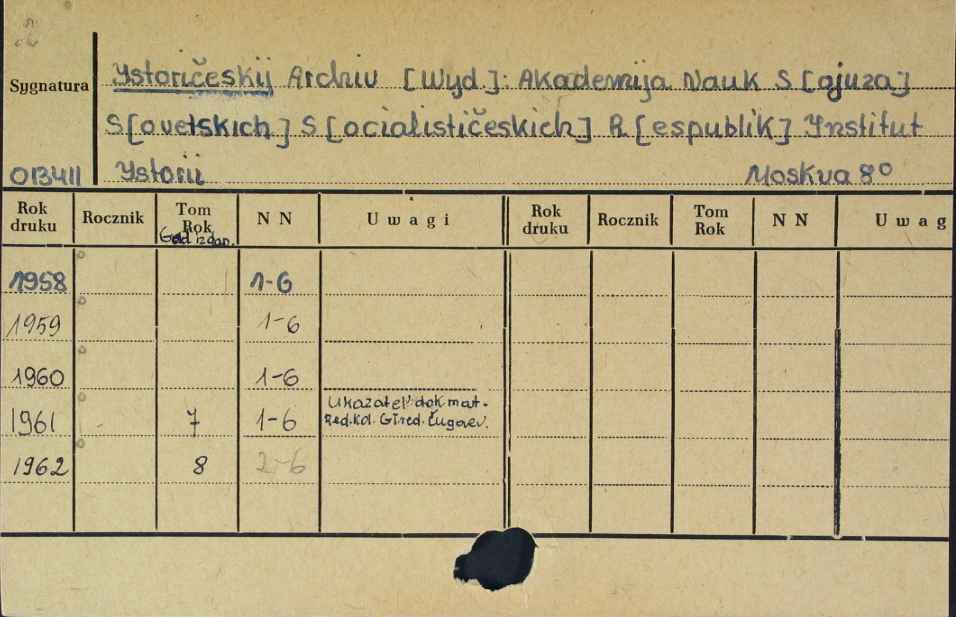 Sygnatura
Ystoričeskij Archiv [Wyd]: Akademija Nauk S[ojuza]
S[ovetskich] S[ocialističeskich] R[espublik] Ynstitut
013411 Ystorii Moskva 8°
Rok druku Rocznik Tom Rok God izdan. N N Uwagi Rok druku Rocznik Tom Rok N N Uwag
1958 1-6
1959 1-6
1960 1-6
1961 7 1-6 Ukazatel' dok. mat.
Red. kol. Gł. red. Čugaev.
1962 8 2-6